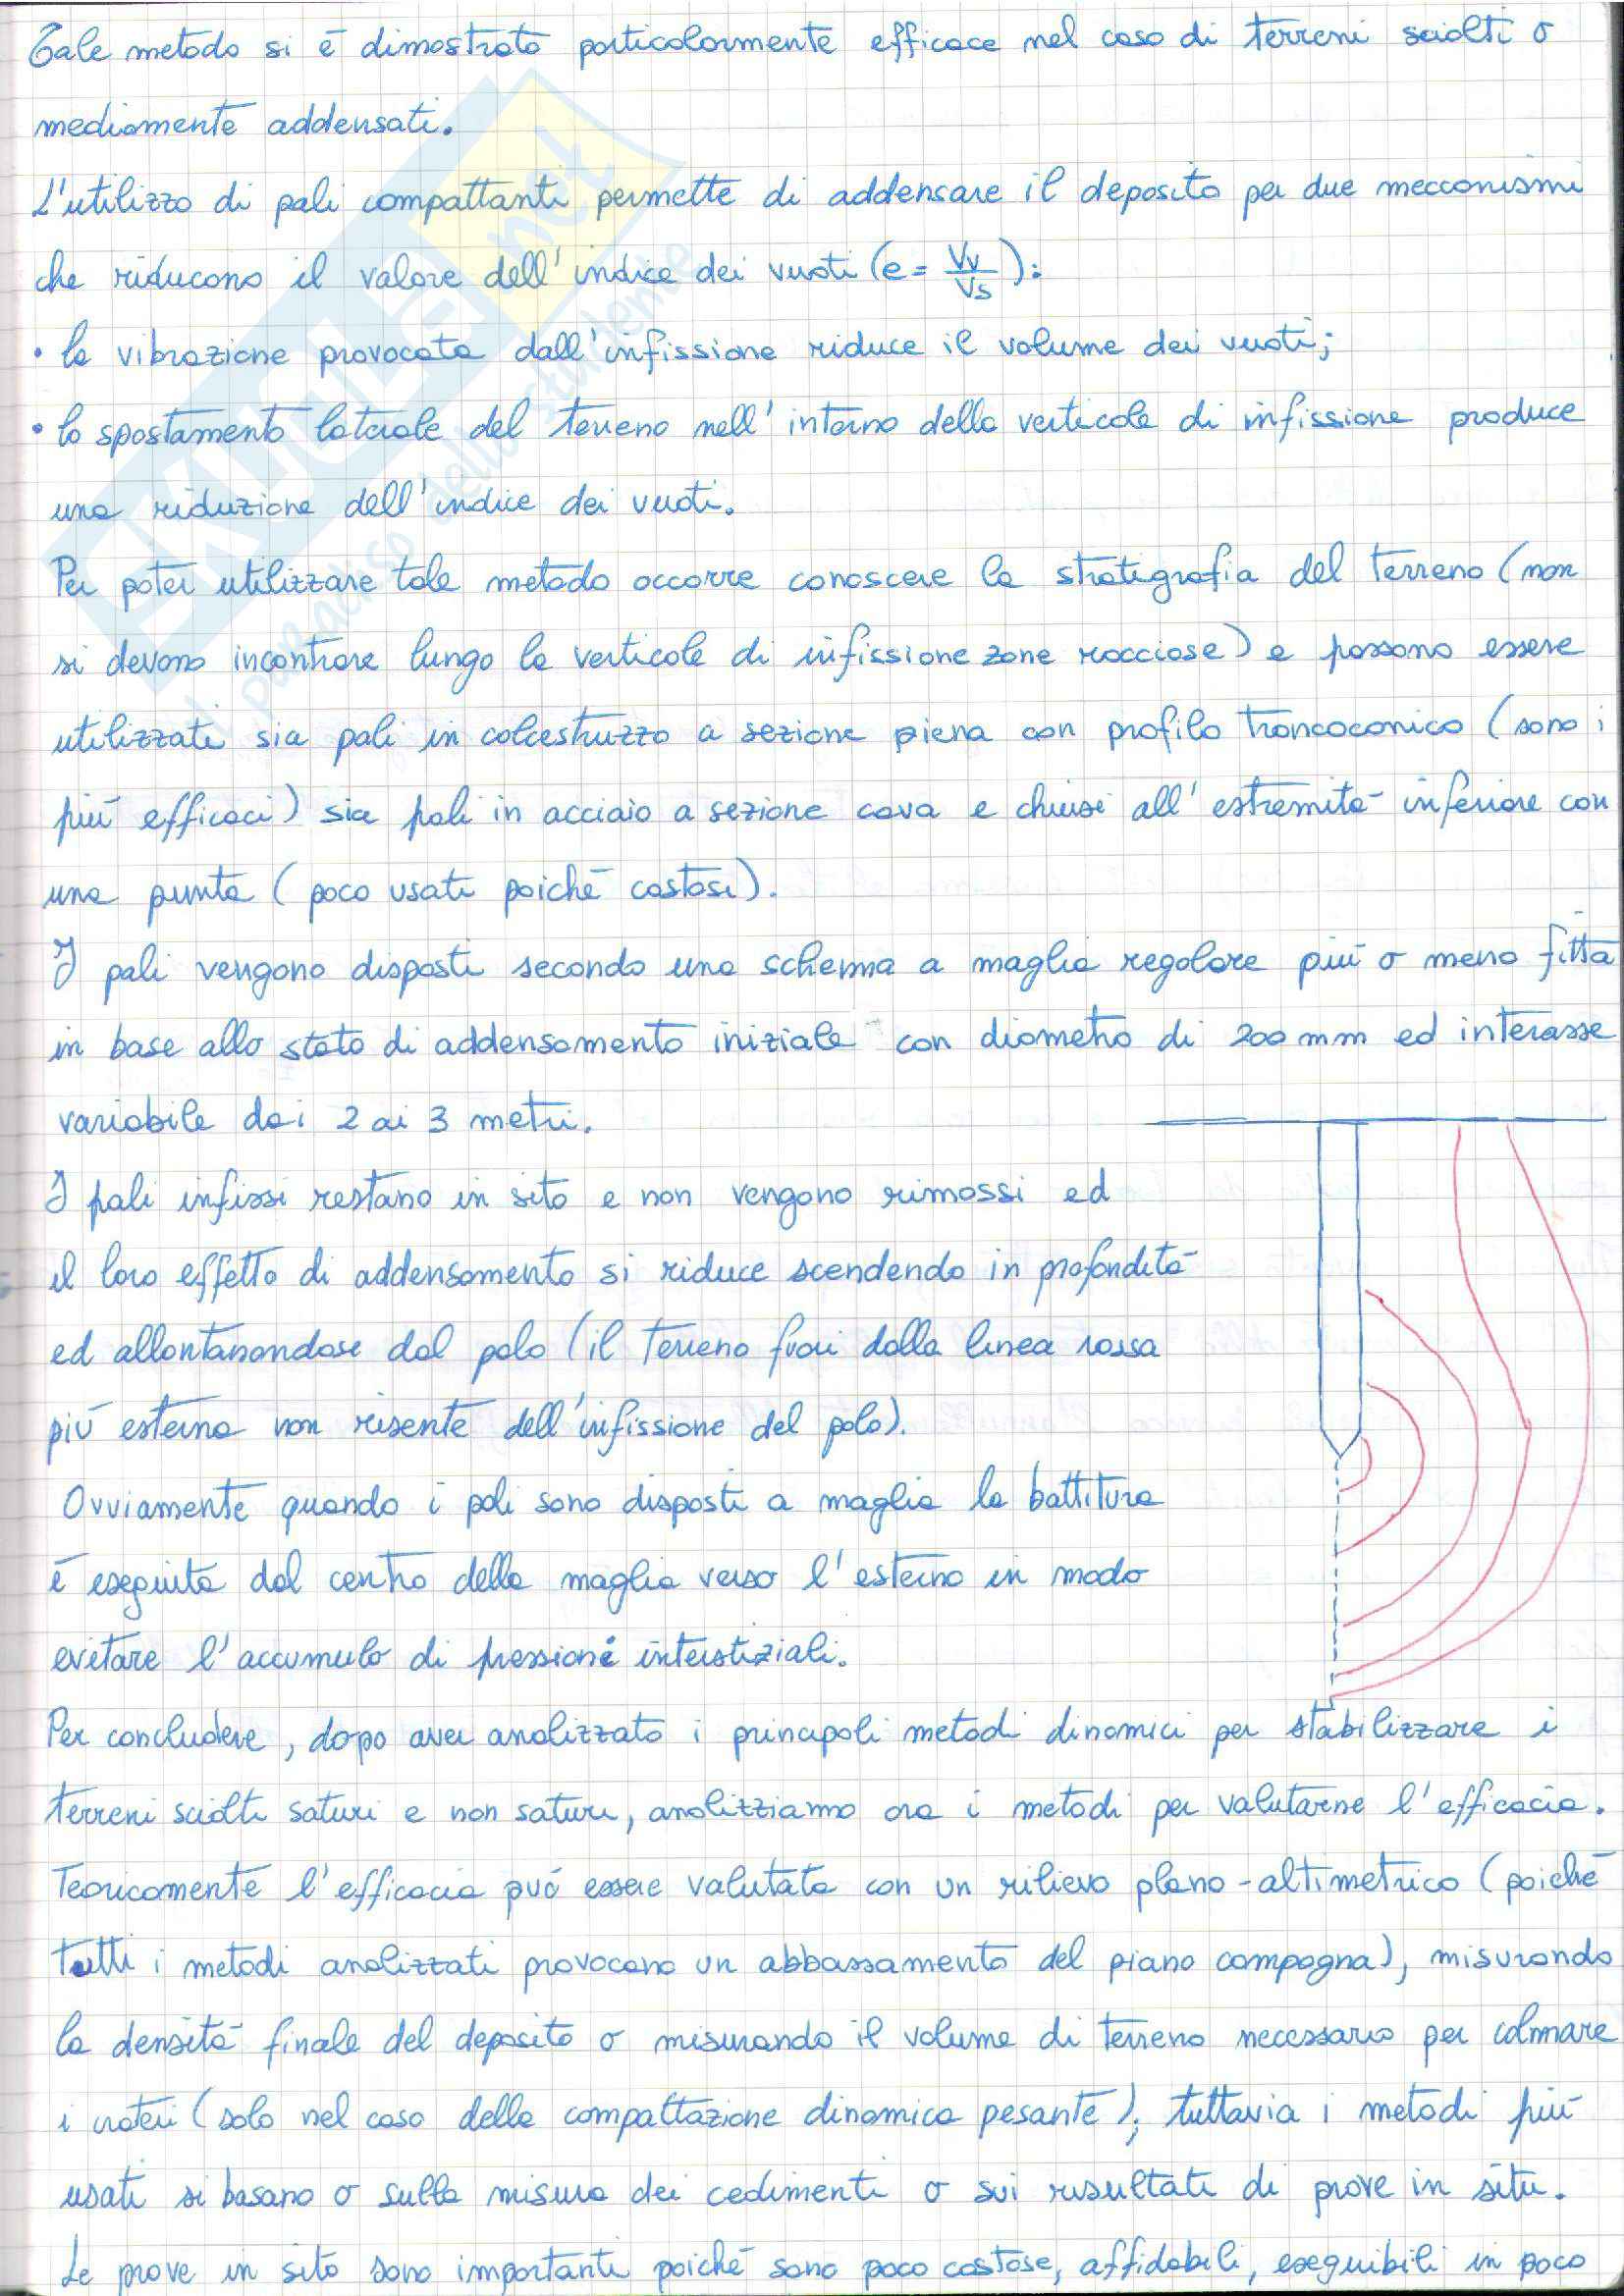 Tale metodo si è dimostrato particolarmente efficace nel caso di terreni sciolti o
mediamente addensati.
L'utilizzo di pali compattanti permette di addensare il deposito per due meccanismi
che riducono il valore dell'indice dei vuoti (e = Vv/Vs):
• la vibrazione provocata dall'infissione riduce il volume dei vuoti;
• lo spostamento laterale del terreno nell'intorno della verticale di infissione produce
una riduzione dell'indice dei vuoti.
Per poter utilizzare tale metodo occorre conoscere la stratigrafia del terreno (non
si devono incontrare lungo la verticale di infissione zone rocciose) e possono essere
utilizzati sia pali in calcestruzzo a sezione piena con profilo troncoconico (sono i
più efficaci) sia pali in acciaio a sezione cava e chiusi all'estremità inferiore con
una punta (poco usati poiché costosi).
I pali vengono disposti secondo uno schema a maglia regolare più o meno fitta
in base allo stato di addensamento iniziale con diametro di 200 mm ed interasse
variabile dai 2 ai 3 metri.
I pali infissi restano in sito e non vengono rimossi ed
il loro effetto di addensamento si riduce scendendo in profondità
ed allontanandosi dal palo (il terreno fuori dalla linea rossa
più esterna non risente dell'infissione del palo).
Ovviamente quando i pali sono disposti a maglia la battitura
è eseguita dal centro della maglia verso l'esterno in modo
evitare l'accumulo di pressioni interstiziali.
Per concludere, dopo aver analizzato i principali metodi dinamici per stabilizzare i
terreni sciolti saturi e non saturi, analizziamo ora i metodi per valutarne l'efficacia.
Teoricamente l'efficacia può essere valutata con un rilievo plano-altimetrico (poiché
tutti i metodi analizzati provocano un abbassamento del piano campagna), misurando
la densità finale del deposito o misurando il volume di terreno necessario per colmare
i crateri (solo nel caso della compattazione dinamica pesante); tuttavia i metodi più
usati si basano o sulla misura dei cedimenti o sui risultati di prove in situ.
Le prove in sito sono importanti poiché sono poco costose, affidabili, eseguibili in poco
SKUOLA.net
il paradiso dello studente